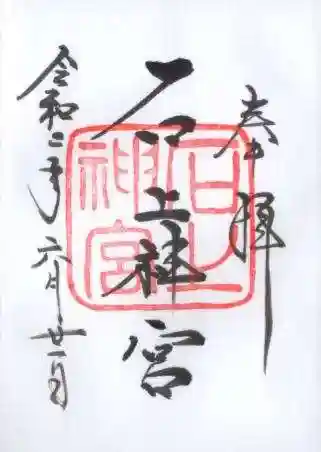 奉拝
石上神宮
石上神宮
令和二年六月廿一日